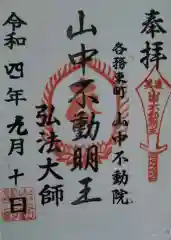 奉拝
各務東町 山中不動院
山中不動明王
弘法大師
令和四年九月十日